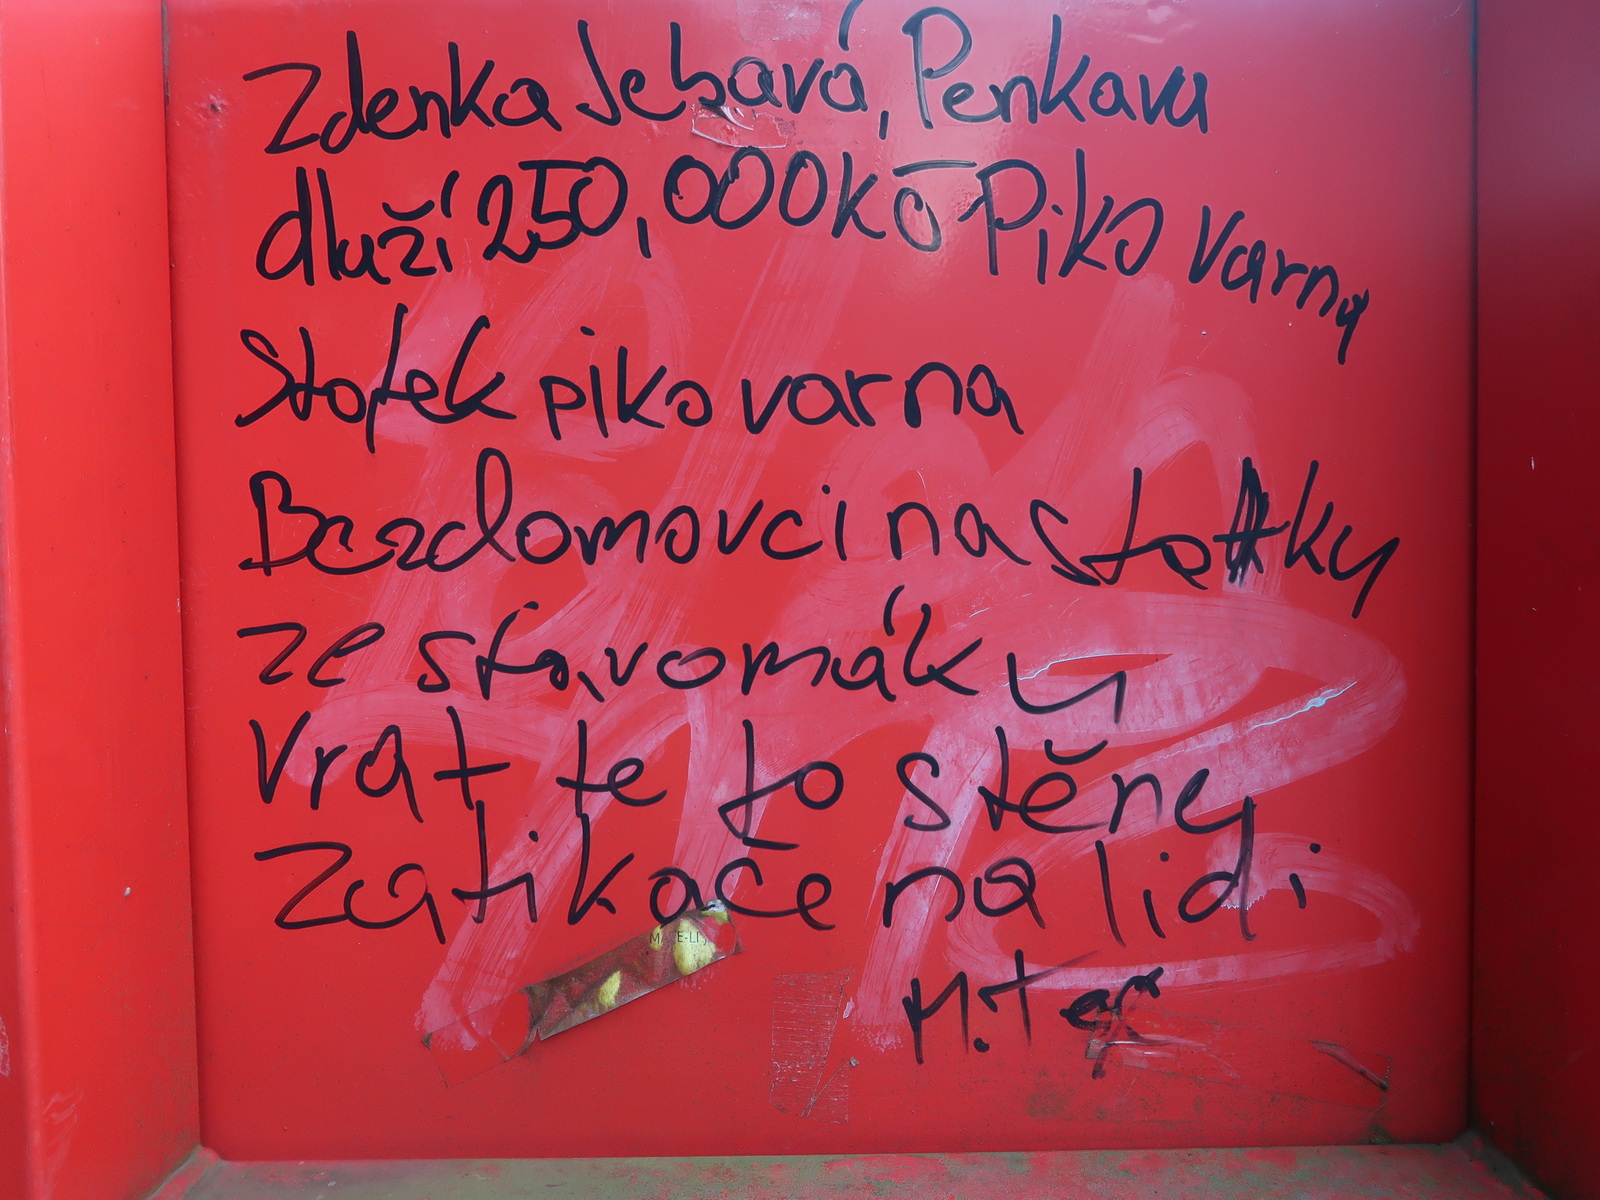 Zdenka Jebavá, Penkava
dluží 250,000kč Piko Varna
Stofek piko varna
Bezdomovci na statky
ze stavomáky
Vrat te to stěny
Zatikače na lidi
M.